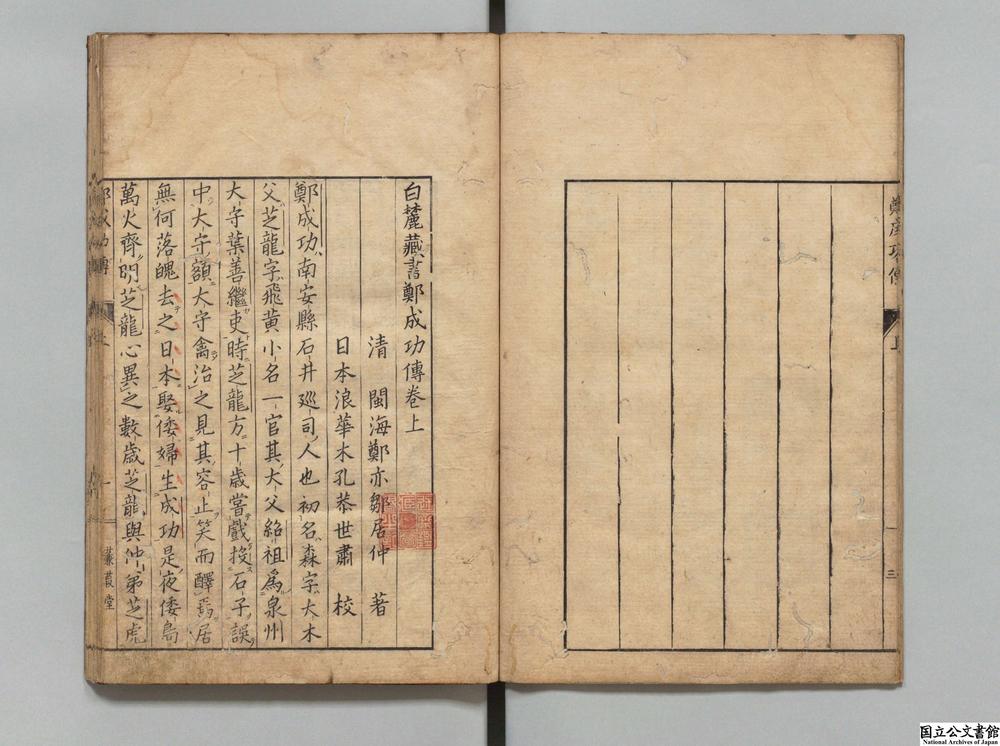 鄭成功傳
三
白麓藏書鄭成功傳卷上
清 閩海鄭亦鄒居仲 著
日本浪華木孔恭世肅 校
鄭成功南安縣石井巡司人也初名森字大木
父芝龍字飛黄小名一官其大父紹祖爲泉州
大守葉善繼吏時芝龍方十歲當戲投石子誤
中大守額大守禽治之見其容止笑而釋焉居
無何落魄去之日本娶倭婦生成功是夜倭島
萬火齊明芝龍心異之數歲芝龍與仲弟芝虎
鄭成功傳
一
蒹葭堂
国立公文書館
National Archives of Japan